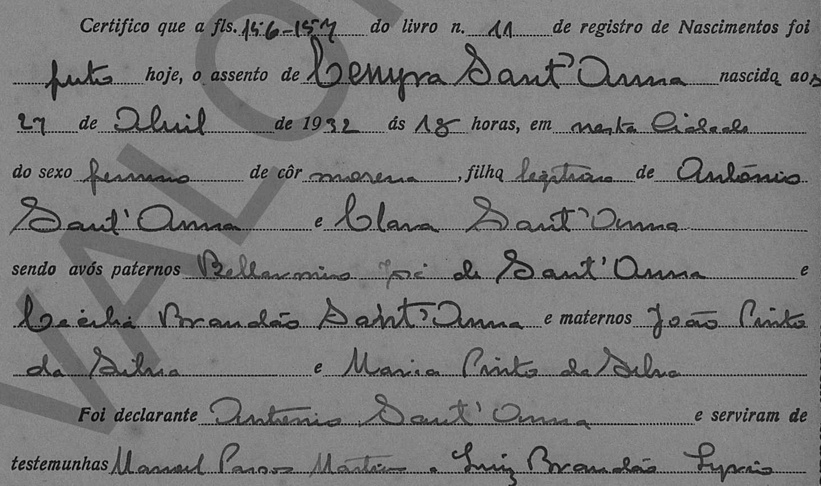 Certifico que a fls. 156-157 do livro n. 11 de registro de Nascimentos foi
feito hoje, o assento de Cenyra Sant'Anna nascida aos
27 de Abril de 1932 ás 18 horas, em nesta Cidade
do sexo feminino de côr morena, filha legitima de Antônio
Sant'Anna e Clara Sant'Anna
sendo avós paternos Bellarmino José de Sant'Anna e
Cecilia Brandão Sant'Anna e maternos João Pinto
da Silva e Maria Pinto da Silva
Foi declarante Antonio Sant'Anna e serviram de
testemunhas Manoel Martins e Luiz Brandão